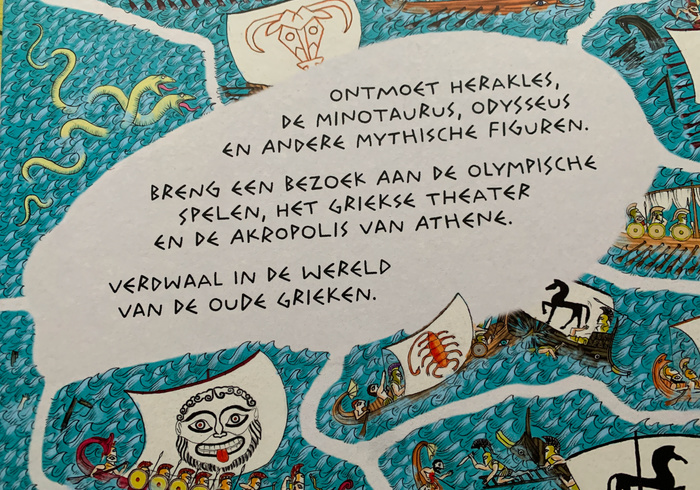 ONTMOET HERAKLES,
DE MINOTAURUS, ODYSSEUS
EN ANDERE MYTHISCHE FIGUREN.
BRENG EEN BEZOEK AAN DE OLYMPISCHE
SPELEN, HET GRIEKSE THEATER
EN DE AKROPOLIS VAN ATHENE.
VERDWAAL IN DE WERELD
VAN DE OUDE GRIEKEN.